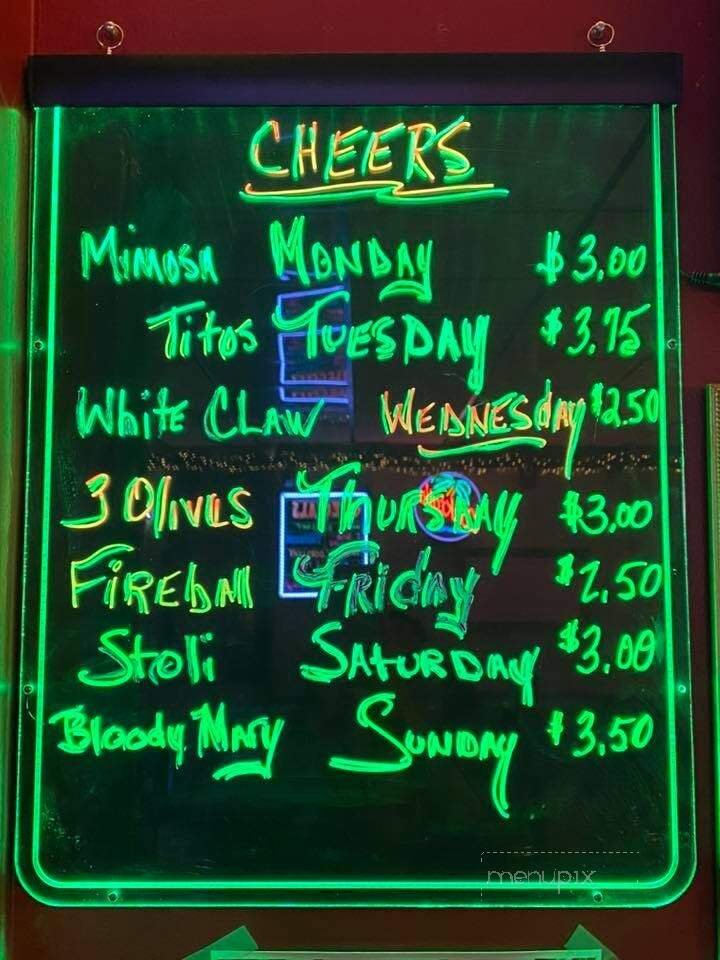 CHEERS
Mimosa Monday $3.00
Titos Tuesday $3.75
White Claw Wednesday $2.50
3 Olives Thursday $3.00
Fireball Friday $2.50
Stoli Saturday $3.00
Bloody Mary Sunday $3.50
menupix